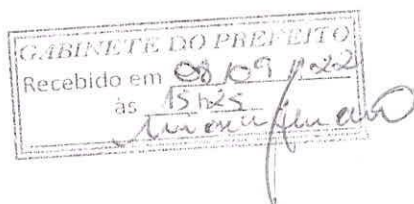 GABINETE DO PREFEITO
Recebido em 08/09/22
às 15h25